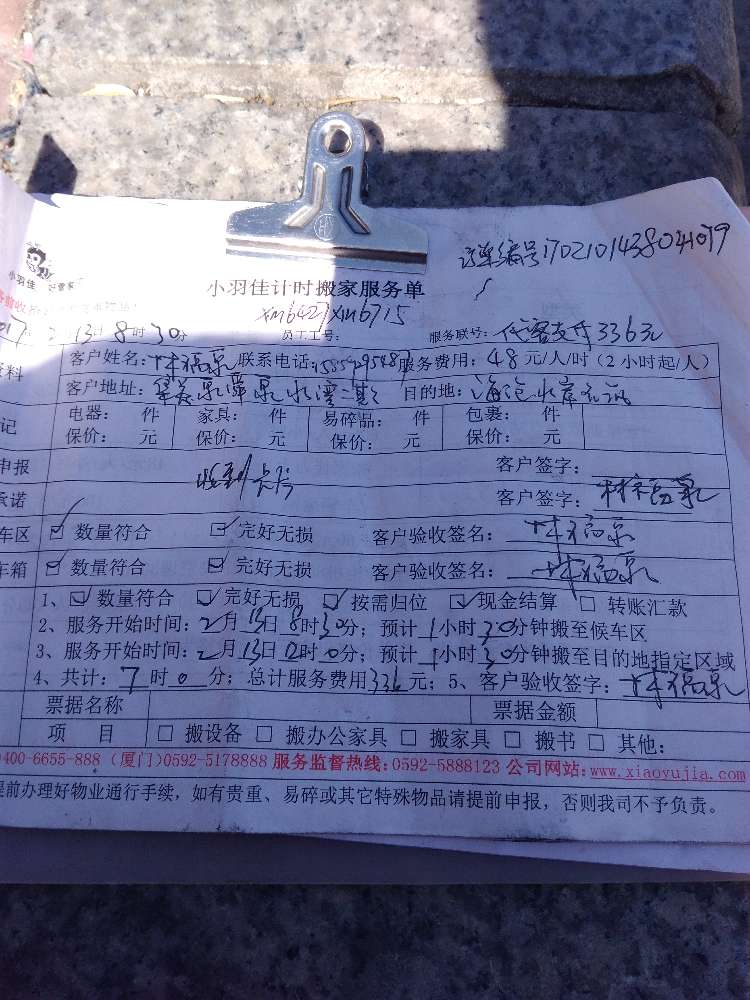 订单编号17021014380411079
小羽佳 好管家
小羽佳计时搬家服务单
xm6427 xm6715
2月13日8时30分 员工工号: 服务联号: 代客支付336元
资料 客户姓名: 林福泉 联系电话: 服务费用: 48元/人/时(2小时起/人)
客户地址: 目的地: 海沧水岸
记 电器: 件 家具: 件 易碎品: 件 包裹: 件
保价: 元 保价: 元 保价: 元 保价: 元
申报 客户签字:
收到卡片
承诺 客户签字: 林福泉
车区 ☑ 数量符合 ☑ 完好无损 客户验收签名: 林福泉
车箱 ☑ 数量符合 ☑ 完好无损 客户验收签名: 林福泉
1、☑ 数量符合 ☑ 完好无损 ☑ 按需归位 ☑ 现金结算 □ 转账汇款
2、服务开始时间: 2月13日8时30分; 预计1小时30分钟搬至候车区
3、服务开始时间: 2月13日12时0分; 预计1小时30分钟搬至目的地指定区域
4、共计: 7时0分; 总计服务费用336元; 5、客户验收签字: 林福泉
票据名称 票据金额
项 目 □ 搬设备 □ 搬办公家具 □ 搬家具 □ 搬书 □ 其他:
400-6655-888 (厦门)0592-5178888 服务监督热线: 0592-5888123 公司网站: www.xiaoyujia.com
提前办理好物业通行手续, 如有贵重、易碎或其它特殊物品请提前申报, 否则我司不予负责。